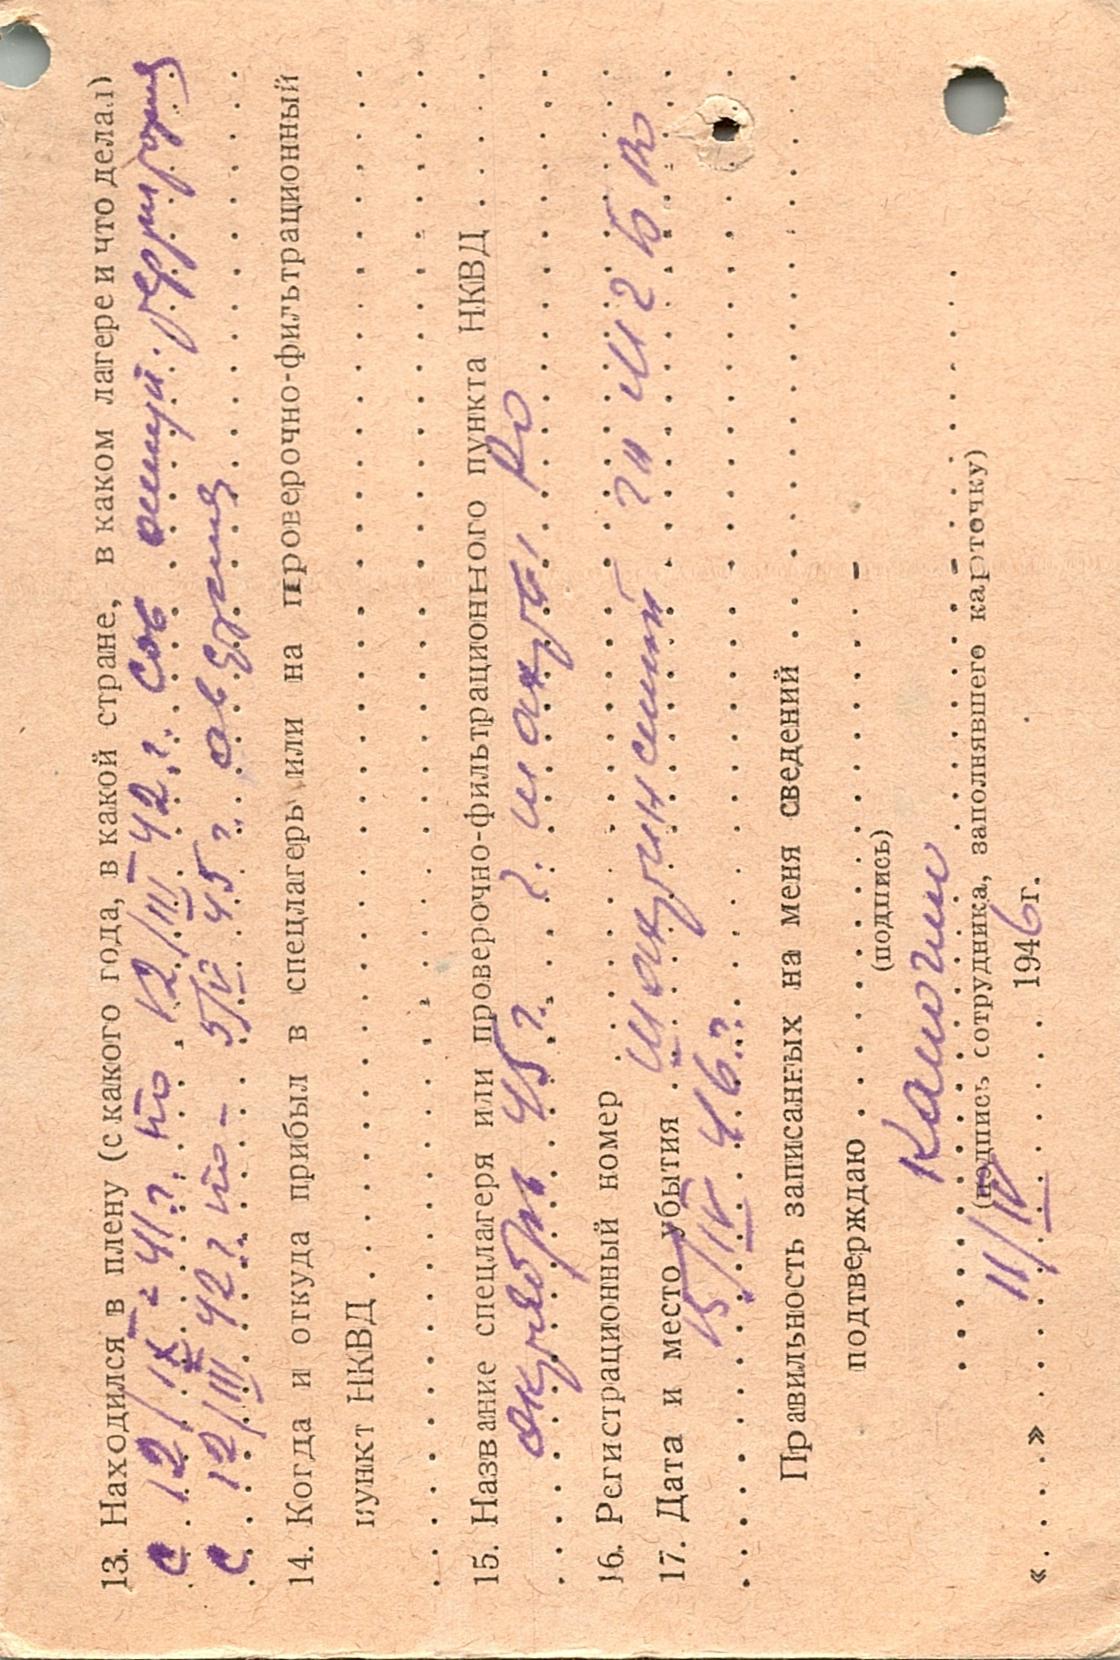 13. Находился в плену (с какого года, в какой стране, в каком лагере и что делал)
с 12/IX - 41 г. по 12/III 42 г. Сов оккуп. территория
с 12/III 42 г. по - 5/IV 45 г.
14. Когда и откуда прибыл в спецлагерь или на проверочно-фильтрационный
пункт НКВД
15. Название спецлагеря или проверочно-фильтрационного пункта НКВД
октябрь 45 г. г. шахты Ро
16. Регистрационный номер
17. Дата и место убытия Шахтинский
15/IV 46 г.
Правильность записанных на меня сведений
подтверждаю
(подпись)
(подпись сотрудника, заполнявшего карточку)
« » 11/IV 1946 г.